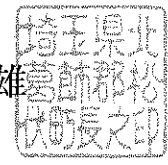 雄
埼玉県北
葛飾郡松
伏町長之印